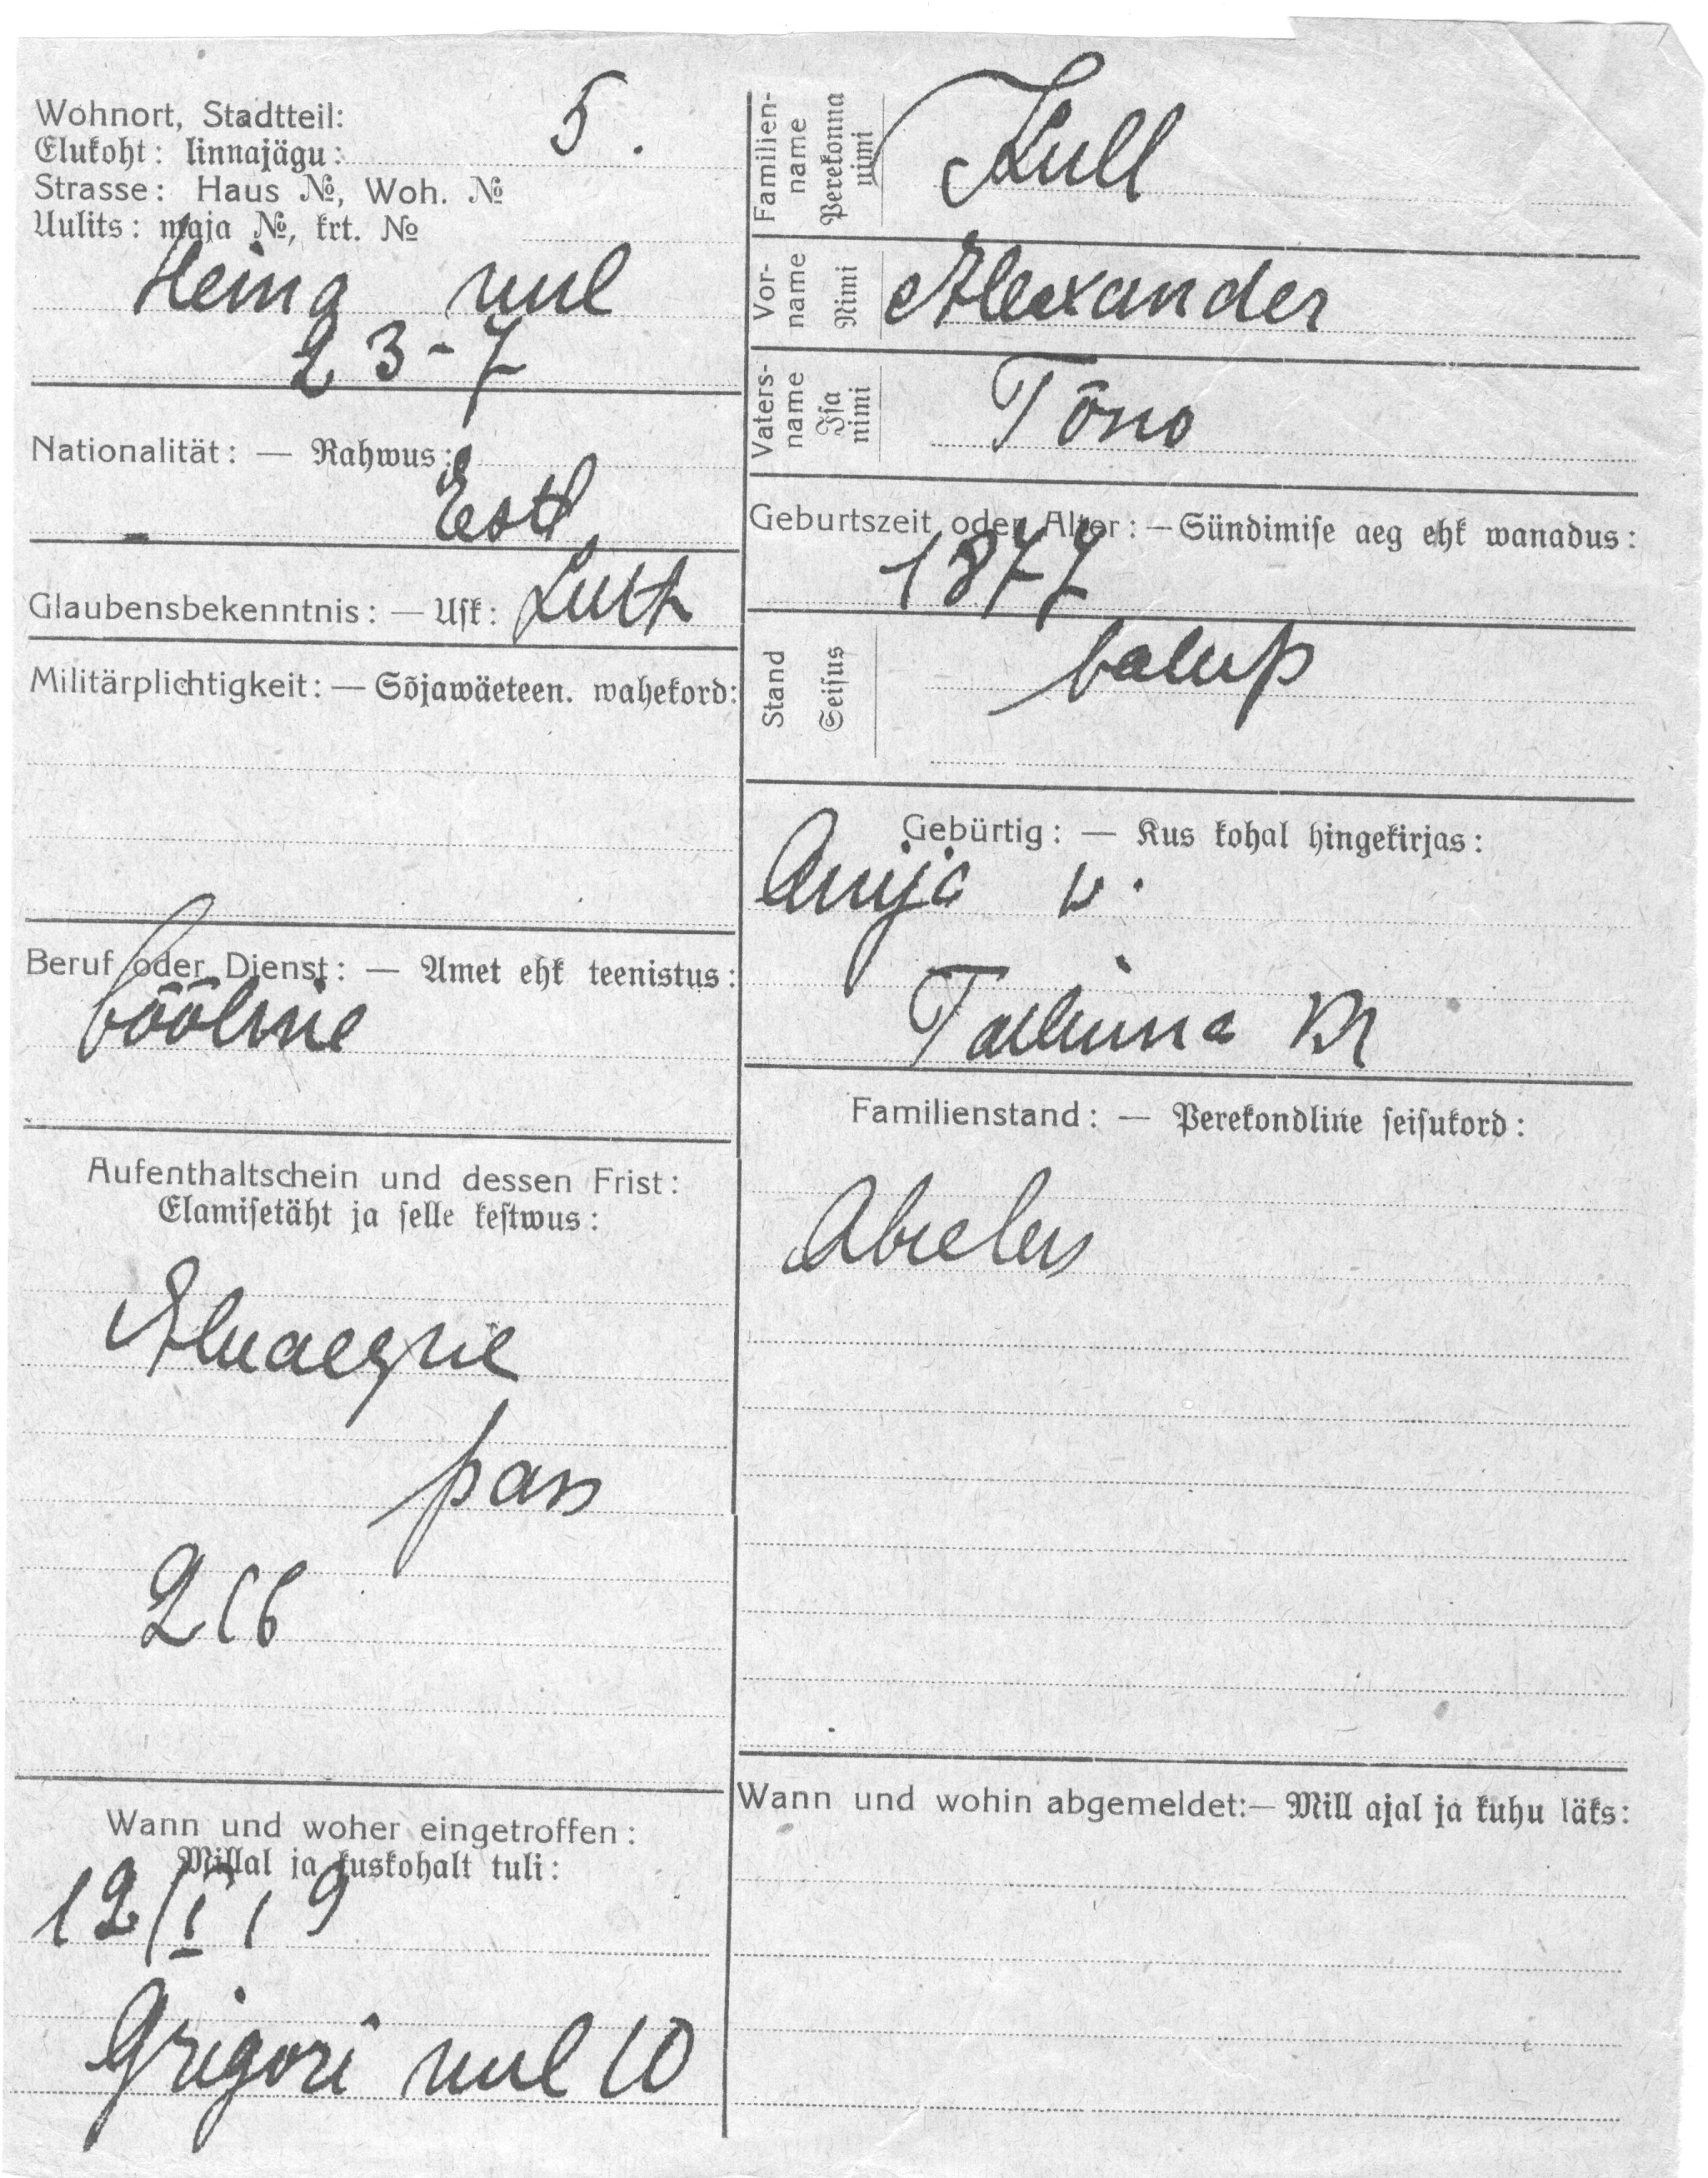 Wohnort, Stadtteil:
Elukoht: linnajägu: 5.
Strasse: Haus №, Woh. №
Uulits: maja №, krt. №
Heina uul
23-7
Nationalität: — Rahwus:
Estl
Glaubensbekenntnis: — Usk: Luth
Militärplichtigkeit: — Sõjawäeteen. wahekord:
Beruf oder Dienst: — Amet ehk teenistus:
tööline
Aufenthaltschein und dessen Frist:
Elamisetäht ja selle kestwus:
Eluaegne
pass
216
Wann und woher eingetroffen:
Millal ja kuskohalt tuli:
12/I 19
Grigori uul 10
Familien-name Perekonna nimi Kull
Vor-name Nimi Alexander
Vaters-name Isa nimi Tõno
Geburtszeit oder Alter: — Sündimise aeg ehk wanadus:
1877
Stand Seisus
talup
Gebürtig: — Kus kohal hingekirjas:
Anija w.
Tallinna Kr
Familienstand: — Perekondline seisukord:
Abielus
Wann und wohin abgemeldet:— Mill ajal ja kuhu läks: